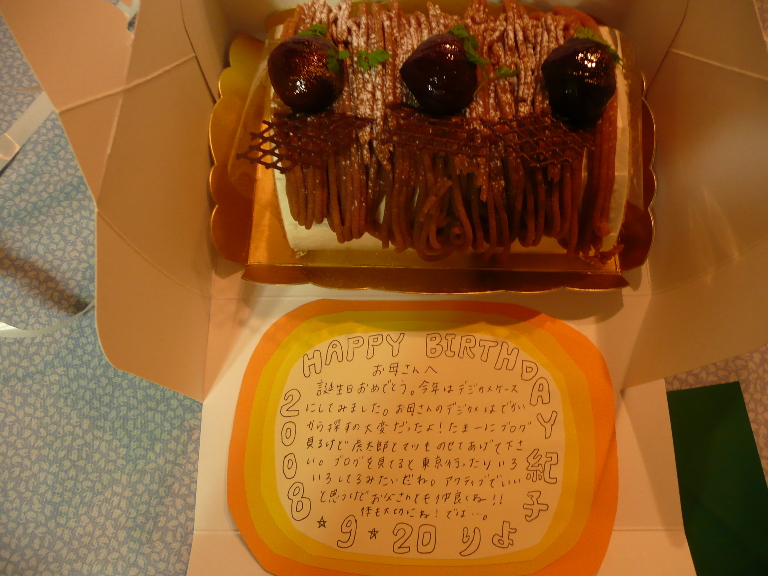 HAPPY BIRTHDAY 紀子
お母さんへ
誕生日おめでとう。今年はデジカメケース
にしてみました。お母さんのデジカメはでかい
から探すの大変だったよ！たまーにブログ
見るけど虎太郎とてりものせてあげて下さ
い。ブログを見てると東京行ったりいろ
いろしてるみたいだね。アクティブでいい
と思うけどお父さんとも仲良くね！！
体も大切にね！では…。
2008☆9☆20 りよ